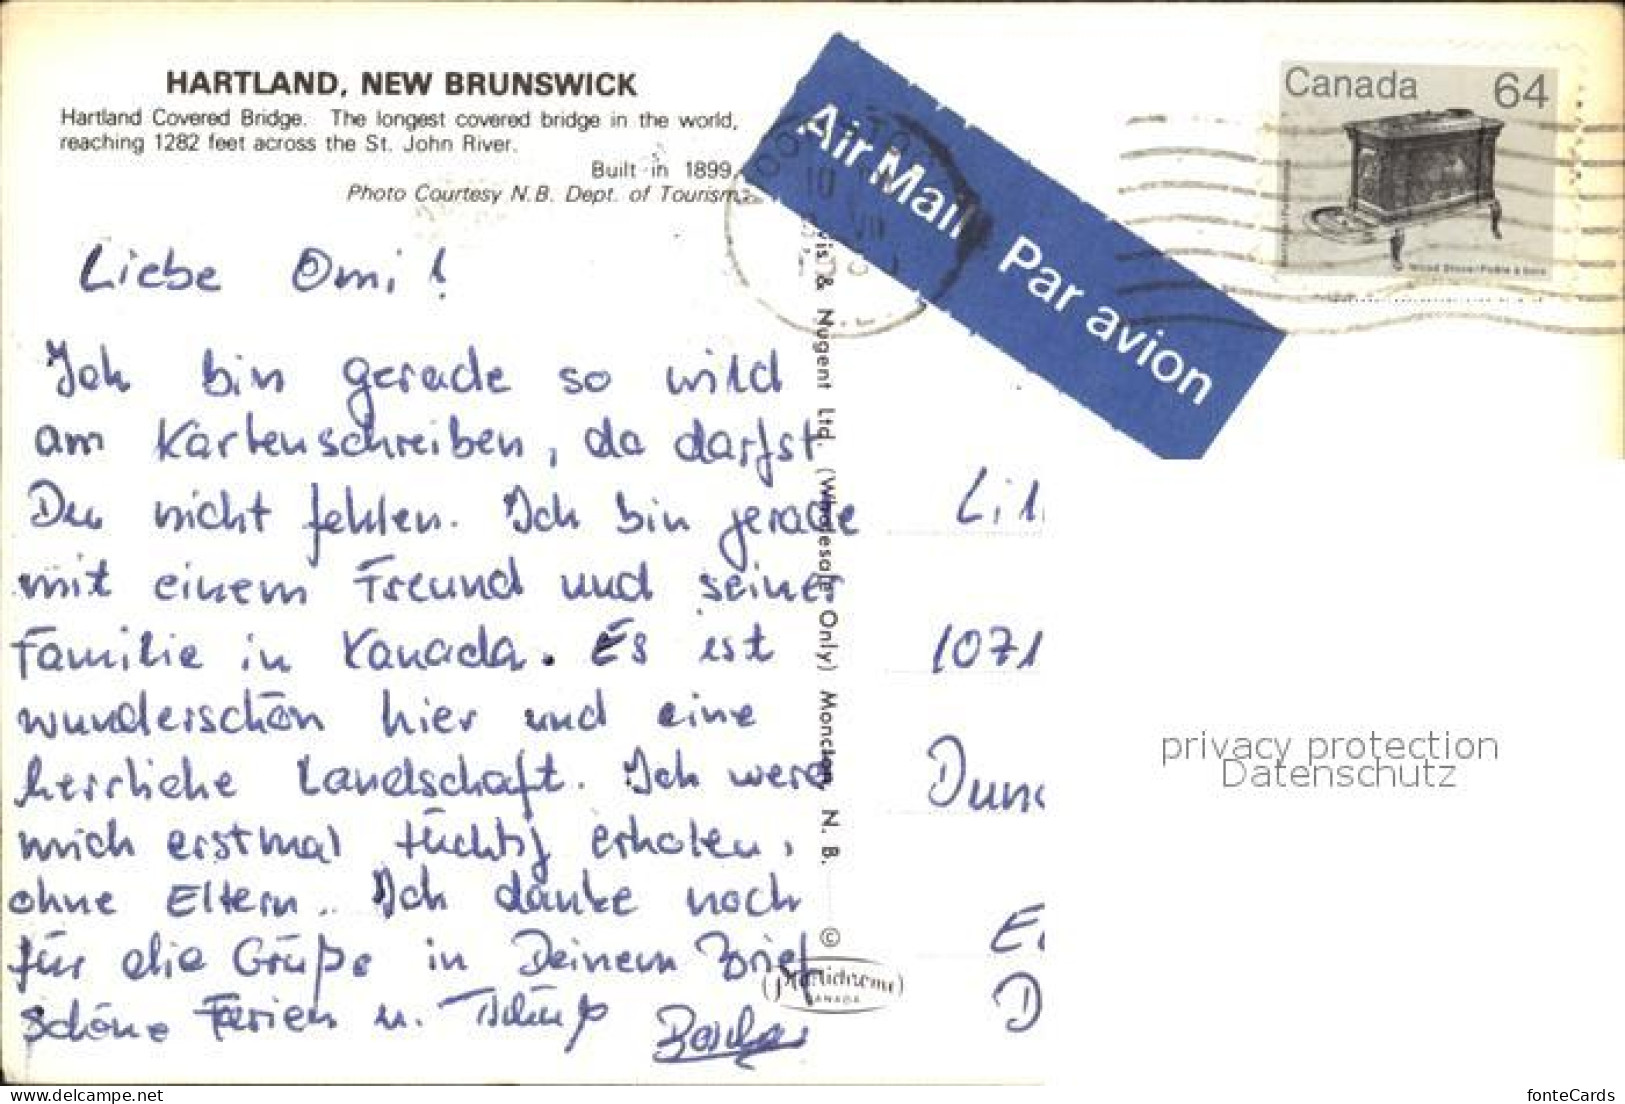 HARTLAND, NEW BRUNSWICK
Hartland Covered Bridge. The longest covered bridge in the world,
reaching 1282 feet across the St. John River.
Built in 1899.
Photo Courtesy N.B. Dept. of Tourism
Air Mail Par avion
Canada 64
Liebe Omi!
Ich bin gerade so wild
am Kartenschreiben, da darfst
Du nicht fehlen. Ich bin gerade
mit einem Freund und seiner
Familie in Kanada. Es ist
wunderschön hier und eine
herrliche Landschaft. Ich werd
mich erstmal tüchtig erholen,
ohne Eltern. Ich danke noch
für die Grüße in Deinem Brief
schöne Ferien u. Tschüß
& Nugent Ltd. (Wholesale Only) Moncton, N. B.
©
CANADA
1071
privacy protection
Datenschutz
delcampe.net
fonteCards